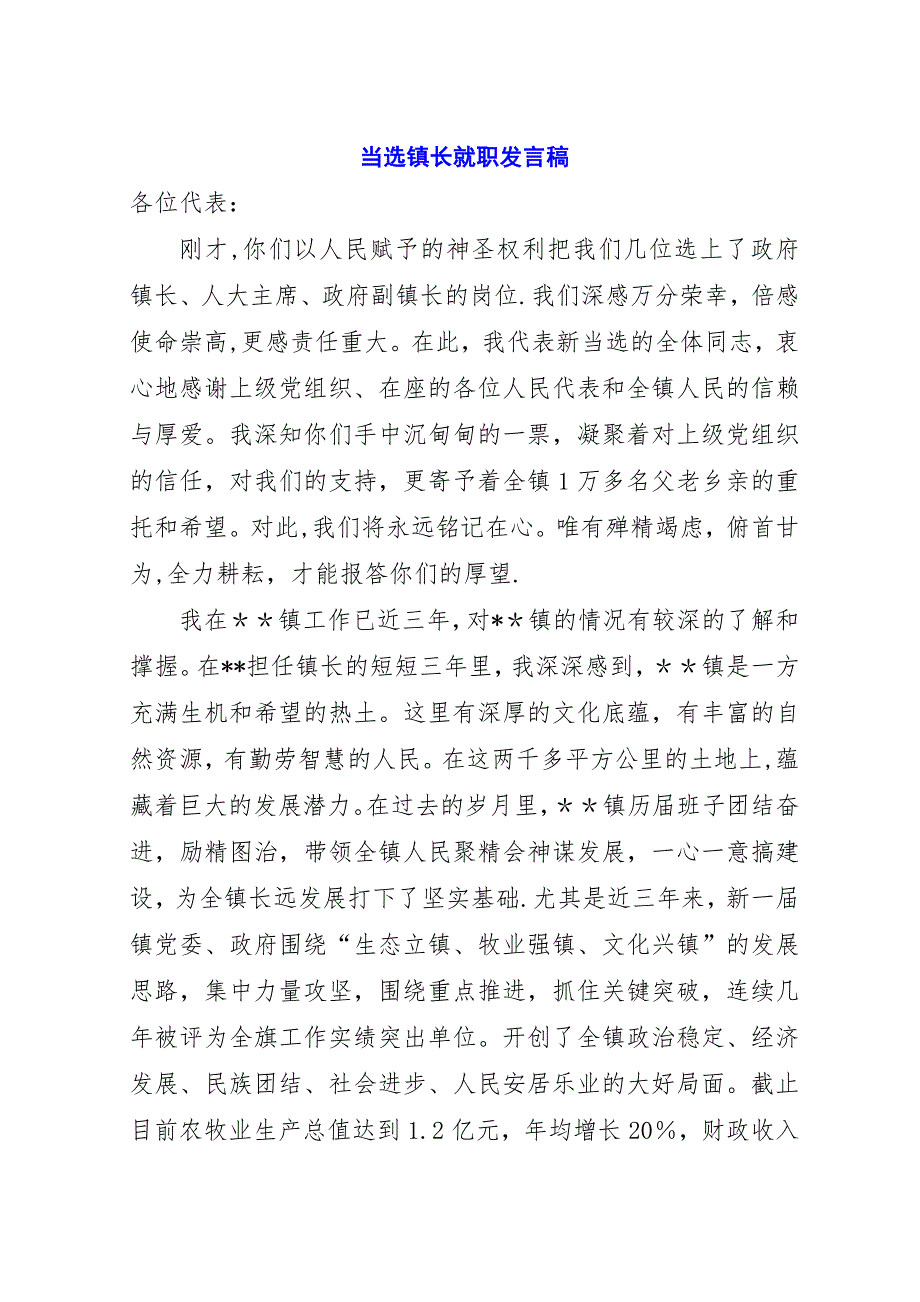 当选镇长就职发言稿
各位代表：
刚才,你们以人民赋予的神圣权利把我们几位选上了政府
镇长、人大主席、政府副镇长的岗位.我们深感万分荣幸，倍感
使命崇高,更感责任重大。在此，我代表新当选的全体同志，衷
心地感谢上级党组织、在座的各位人民代表和全镇人民的信赖
与厚爱。我深知你们手中沉甸甸的一票，凝聚着对上级党组织
的信任，对我们的支持，更寄予着全镇1万多名父老乡亲的重
托和希望。对此,我们将永远铭记在心。唯有殚精竭虑，俯首甘
为,全力耕耘，才能报答你们的厚望.
我在＊＊镇工作已近三年,对*＊镇的情况有较深的了解和
撑握。在**担任镇长的短短三年里，我深深感到，＊＊镇是一方
充满生机和希望的热土。这里有深厚的文化底蕴，有丰富的自
然资源，有勤劳智慧的人民。在这两千多平方公里的土地上,蕴
藏着巨大的发展潜力。在过去的岁月里，＊＊镇历届班子团结奋
进，励精图治，带领全镇人民聚精会神谋发展，一心一意搞建
设，为全镇长远发展打下了坚实基础.尤其是近三年来，新一届
镇党委、政府围绕“生态立镇、牧业强镇、文化兴镇”的发展
思路，集中力量攻坚，围绕重点推进，抓住关键突破，连续几
年被评为全旗工作实绩突出单位。开创了全镇政治稳定、经济
发展、民族团结、社会进步、人民安居乐业的大好局面。截止
目前农牧业生产总值达到1.2亿元，年均增长20％，财政收入